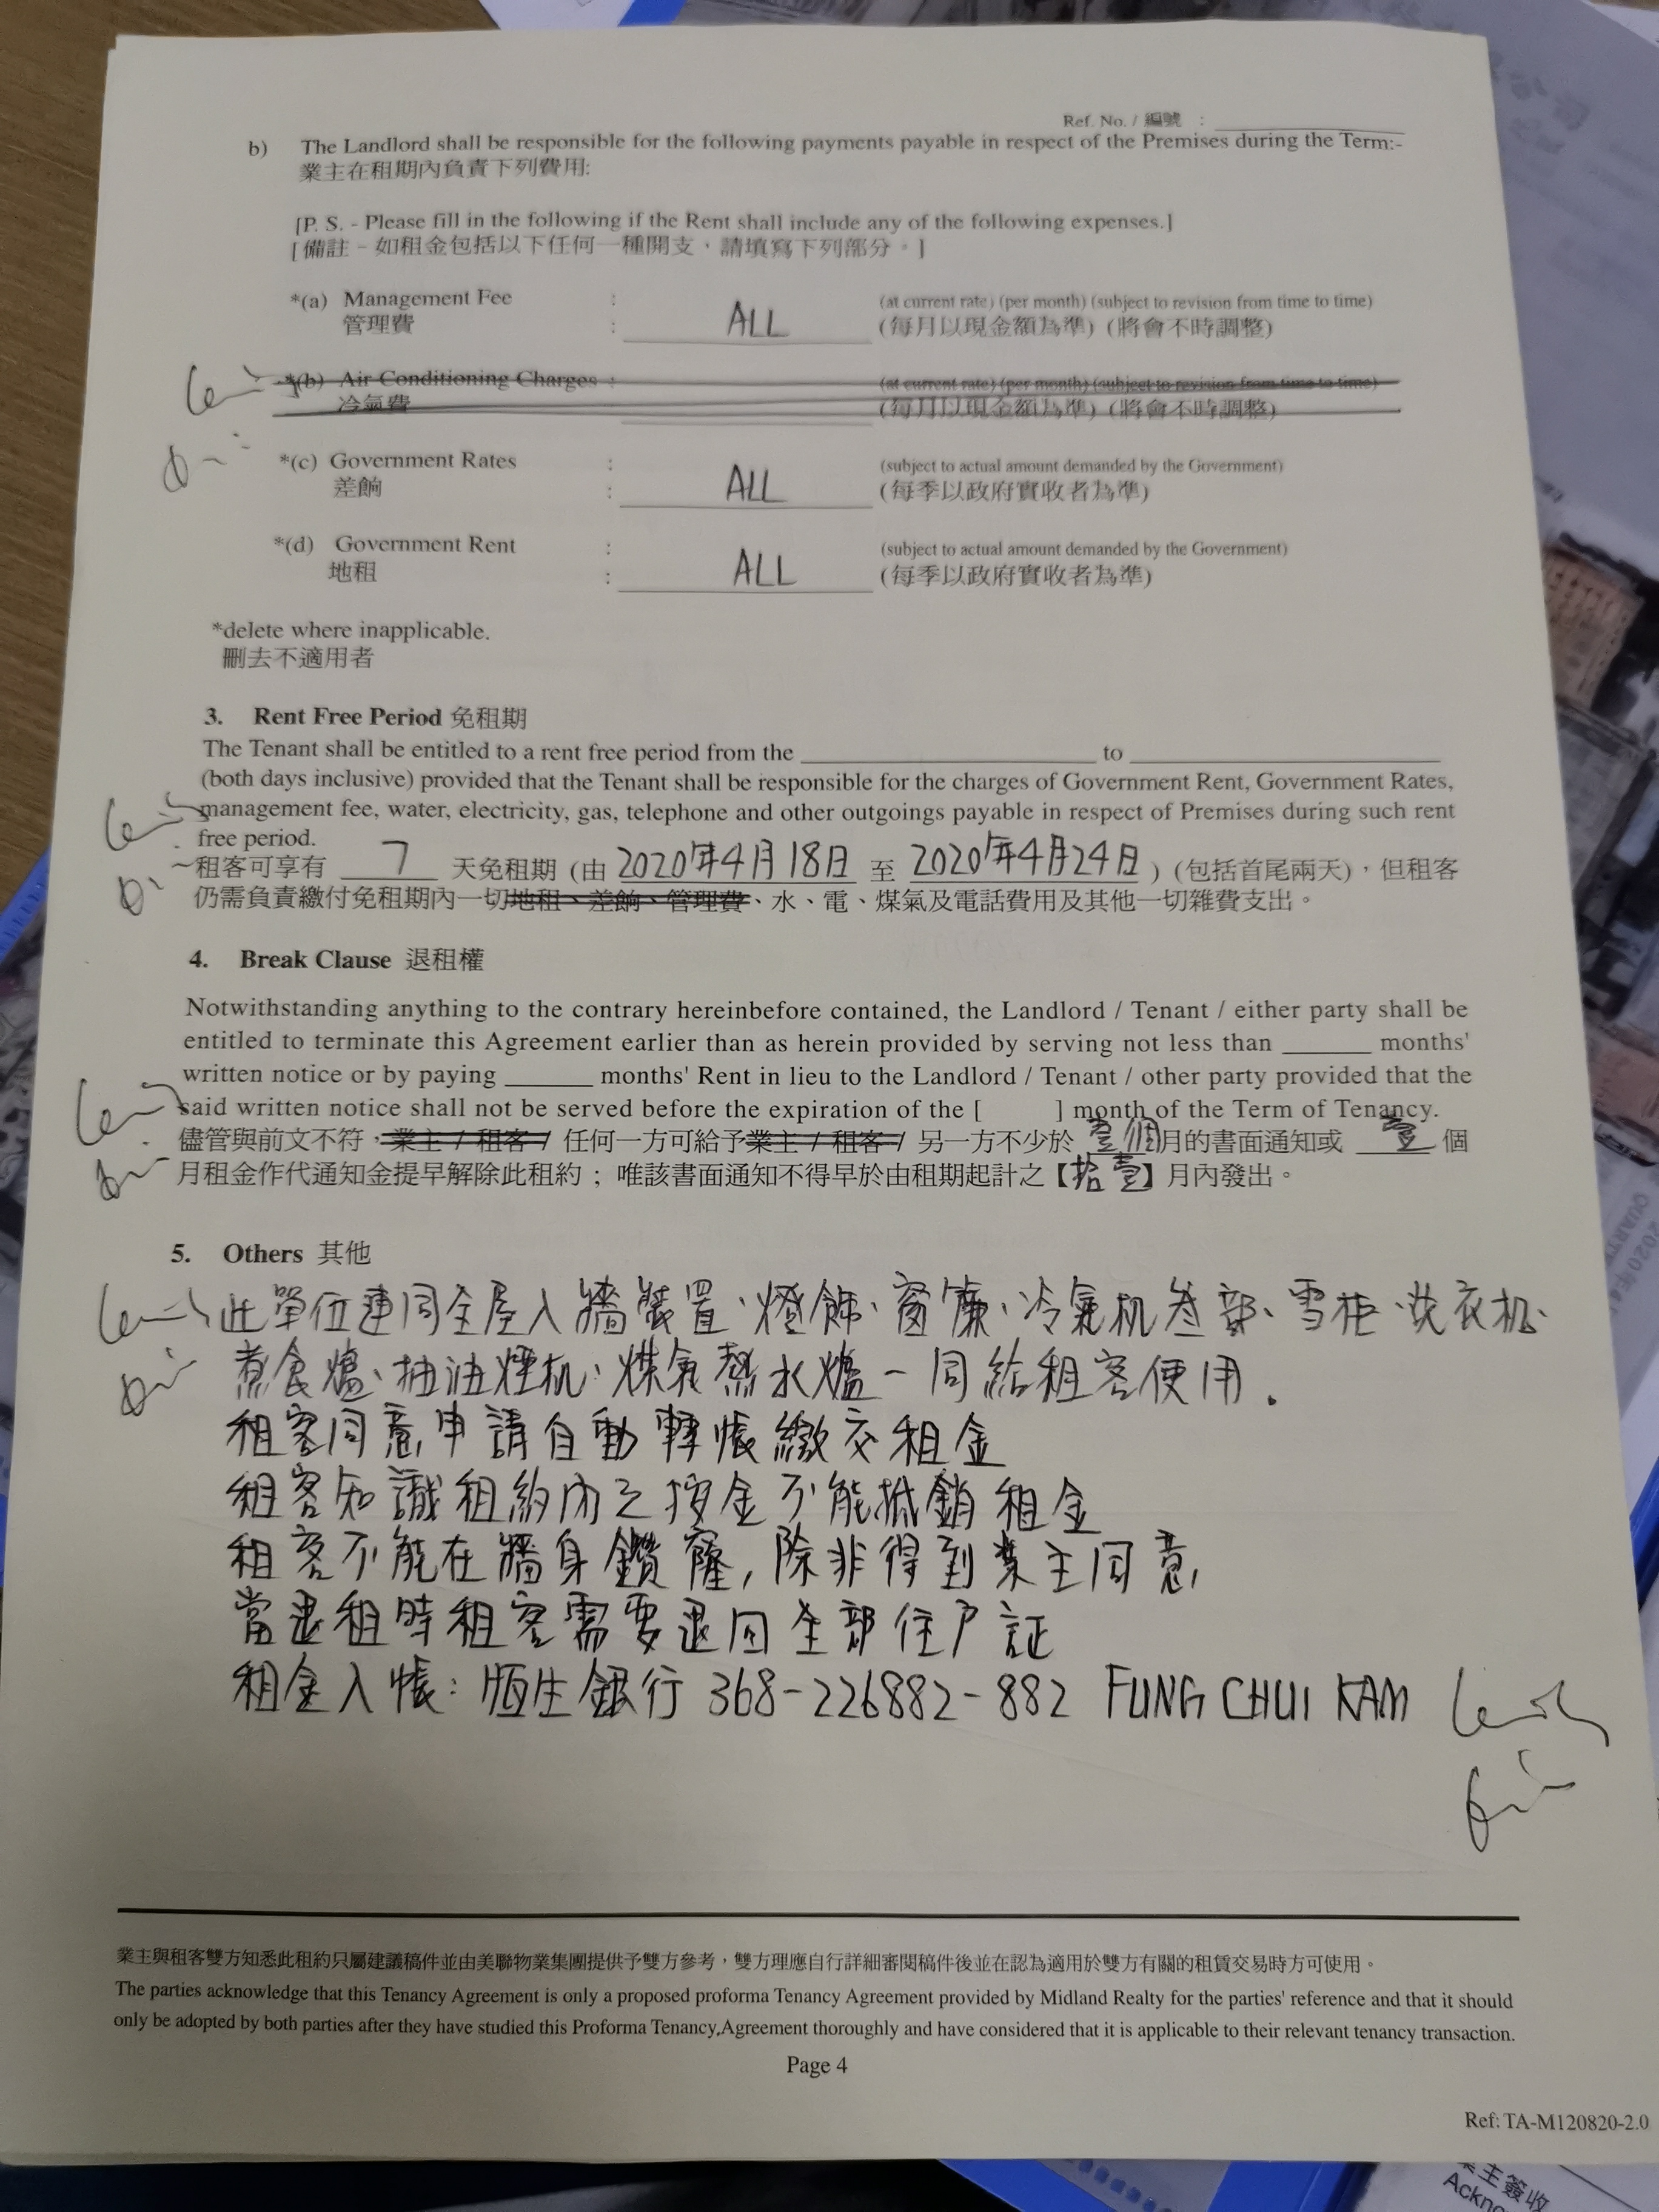 Ref. No. / 編號 :
b) The Landlord shall be responsible for the following payments payable in respect of the Premises during the Term:-
業主在租期內負責下列費用:
[P. S. - Please fill in the following if the Rent shall include any of the following expenses.]
[備註 - 如租金包括以下任何一種開支，請填寫下列部分。]
*(a) Management Fee : ALL (at current rate) (per month) (subject to revision from time to time)
管理費 : (每月以現金額為準) (將會不時調整)
*(b) Air Conditioning Charges : (at current rate) (per month) (subject to revision from time to time)
冷氣費 (每月以現金額為準) (將會不時調整)
*(c) Government Rates : ALL (subject to actual amount demanded by the Government)
差餉 : (每季以政府實收者為準)
*(d) Government Rent : ALL (subject to actual amount demanded by the Government)
地租 : (每季以政府實收者為準)
*delete where inapplicable.
刪去不適用者
3. Rent Free Period 免租期
The Tenant shall be entitled to a rent free period from the ____ to ____
(both days inclusive) provided that the Tenant shall be responsible for the charges of Government Rent, Government Rates,
management fee, water, electricity, gas, telephone and other outgoings payable in respect of Premises during such rent
free period.
租客可享有 7 天免租期 (由 2020年4月18日 至 2020年4月24日 ) (包括首尾兩天)，但租客
仍需負責繳付免租期內一切地租、差餉、管理費、水、電、煤氣及電話費用及其他一切雜費支出。
4. Break Clause 退租權
Notwithstanding anything to the contrary hereinbefore contained, the Landlord / Tenant / either party shall be
entitled to terminate this Agreement earlier than as herein provided by serving not less than ____ months'
written notice or by paying ____ months' Rent in lieu to the Landlord / Tenant / other party provided that the
said written notice shall not be served before the expiration of the [ ] month of the Term of Tenancy.
儘管與前文不符，業主 / 租客 / 任何一方可給予業主 / 租客 / 另一方不少於 壹個月的書面通知或 壹 個
月租金作代通知金提早解除此租約；唯該書面通知不得早於由租期起計之【拾壹】月內發出。
5. Others 其他
此單位連同全屋入牆裝置、燈飾、窗簾、冷氣机叁部、雪柜、洗衣机、
煮食爐、抽油煙机、煤氣熱水爐一同給租客使用.
租客同意申請自動轉帳繳交租金
租客知識租約內之按金不能抵銷租金
租客不能在牆身鑽窿, 除非得到業主同意
當退租時租客需要退回全部住户証
租金入帳: 恆生銀行 368-226882-882 FUNG CHUI KAM
業主與租客雙方知悉此租約只屬建議稿件並由美聯物業集團提供予雙方參考，雙方理應自行詳細審閱稿件後並在認為適用於雙方有關的租賃交易時方可使用。
The parties acknowledge that this Tenancy Agreement is only a proposed proforma Tenancy Agreement provided by Midland Realty for the parties' reference and that it should
only be adopted by both parties after they have studied this Proforma Tenancy Agreement thoroughly and have considered that it is applicable to their relevant tenancy transaction.
Page 4
Ref: TA-M120820-2.0
業主簽收